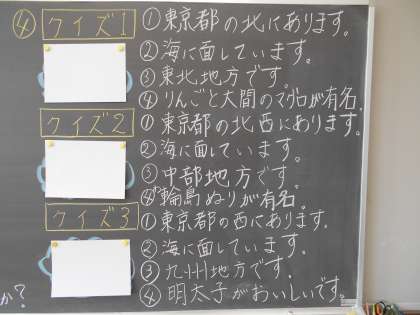 ④ クイズ1
①東京都の北にあります。
②海に面しています。
③東北地方です。
④りんごと大間のマグロが有名。
クイズ2
①東京都の北西にあります。
②海に面しています。
③中部地方です。
④輪島ぬりが有名。
クイズ3
①東京都の西にあります。
②海に面しています。
③九州地方です。
④明太子がおいしいです。
か?